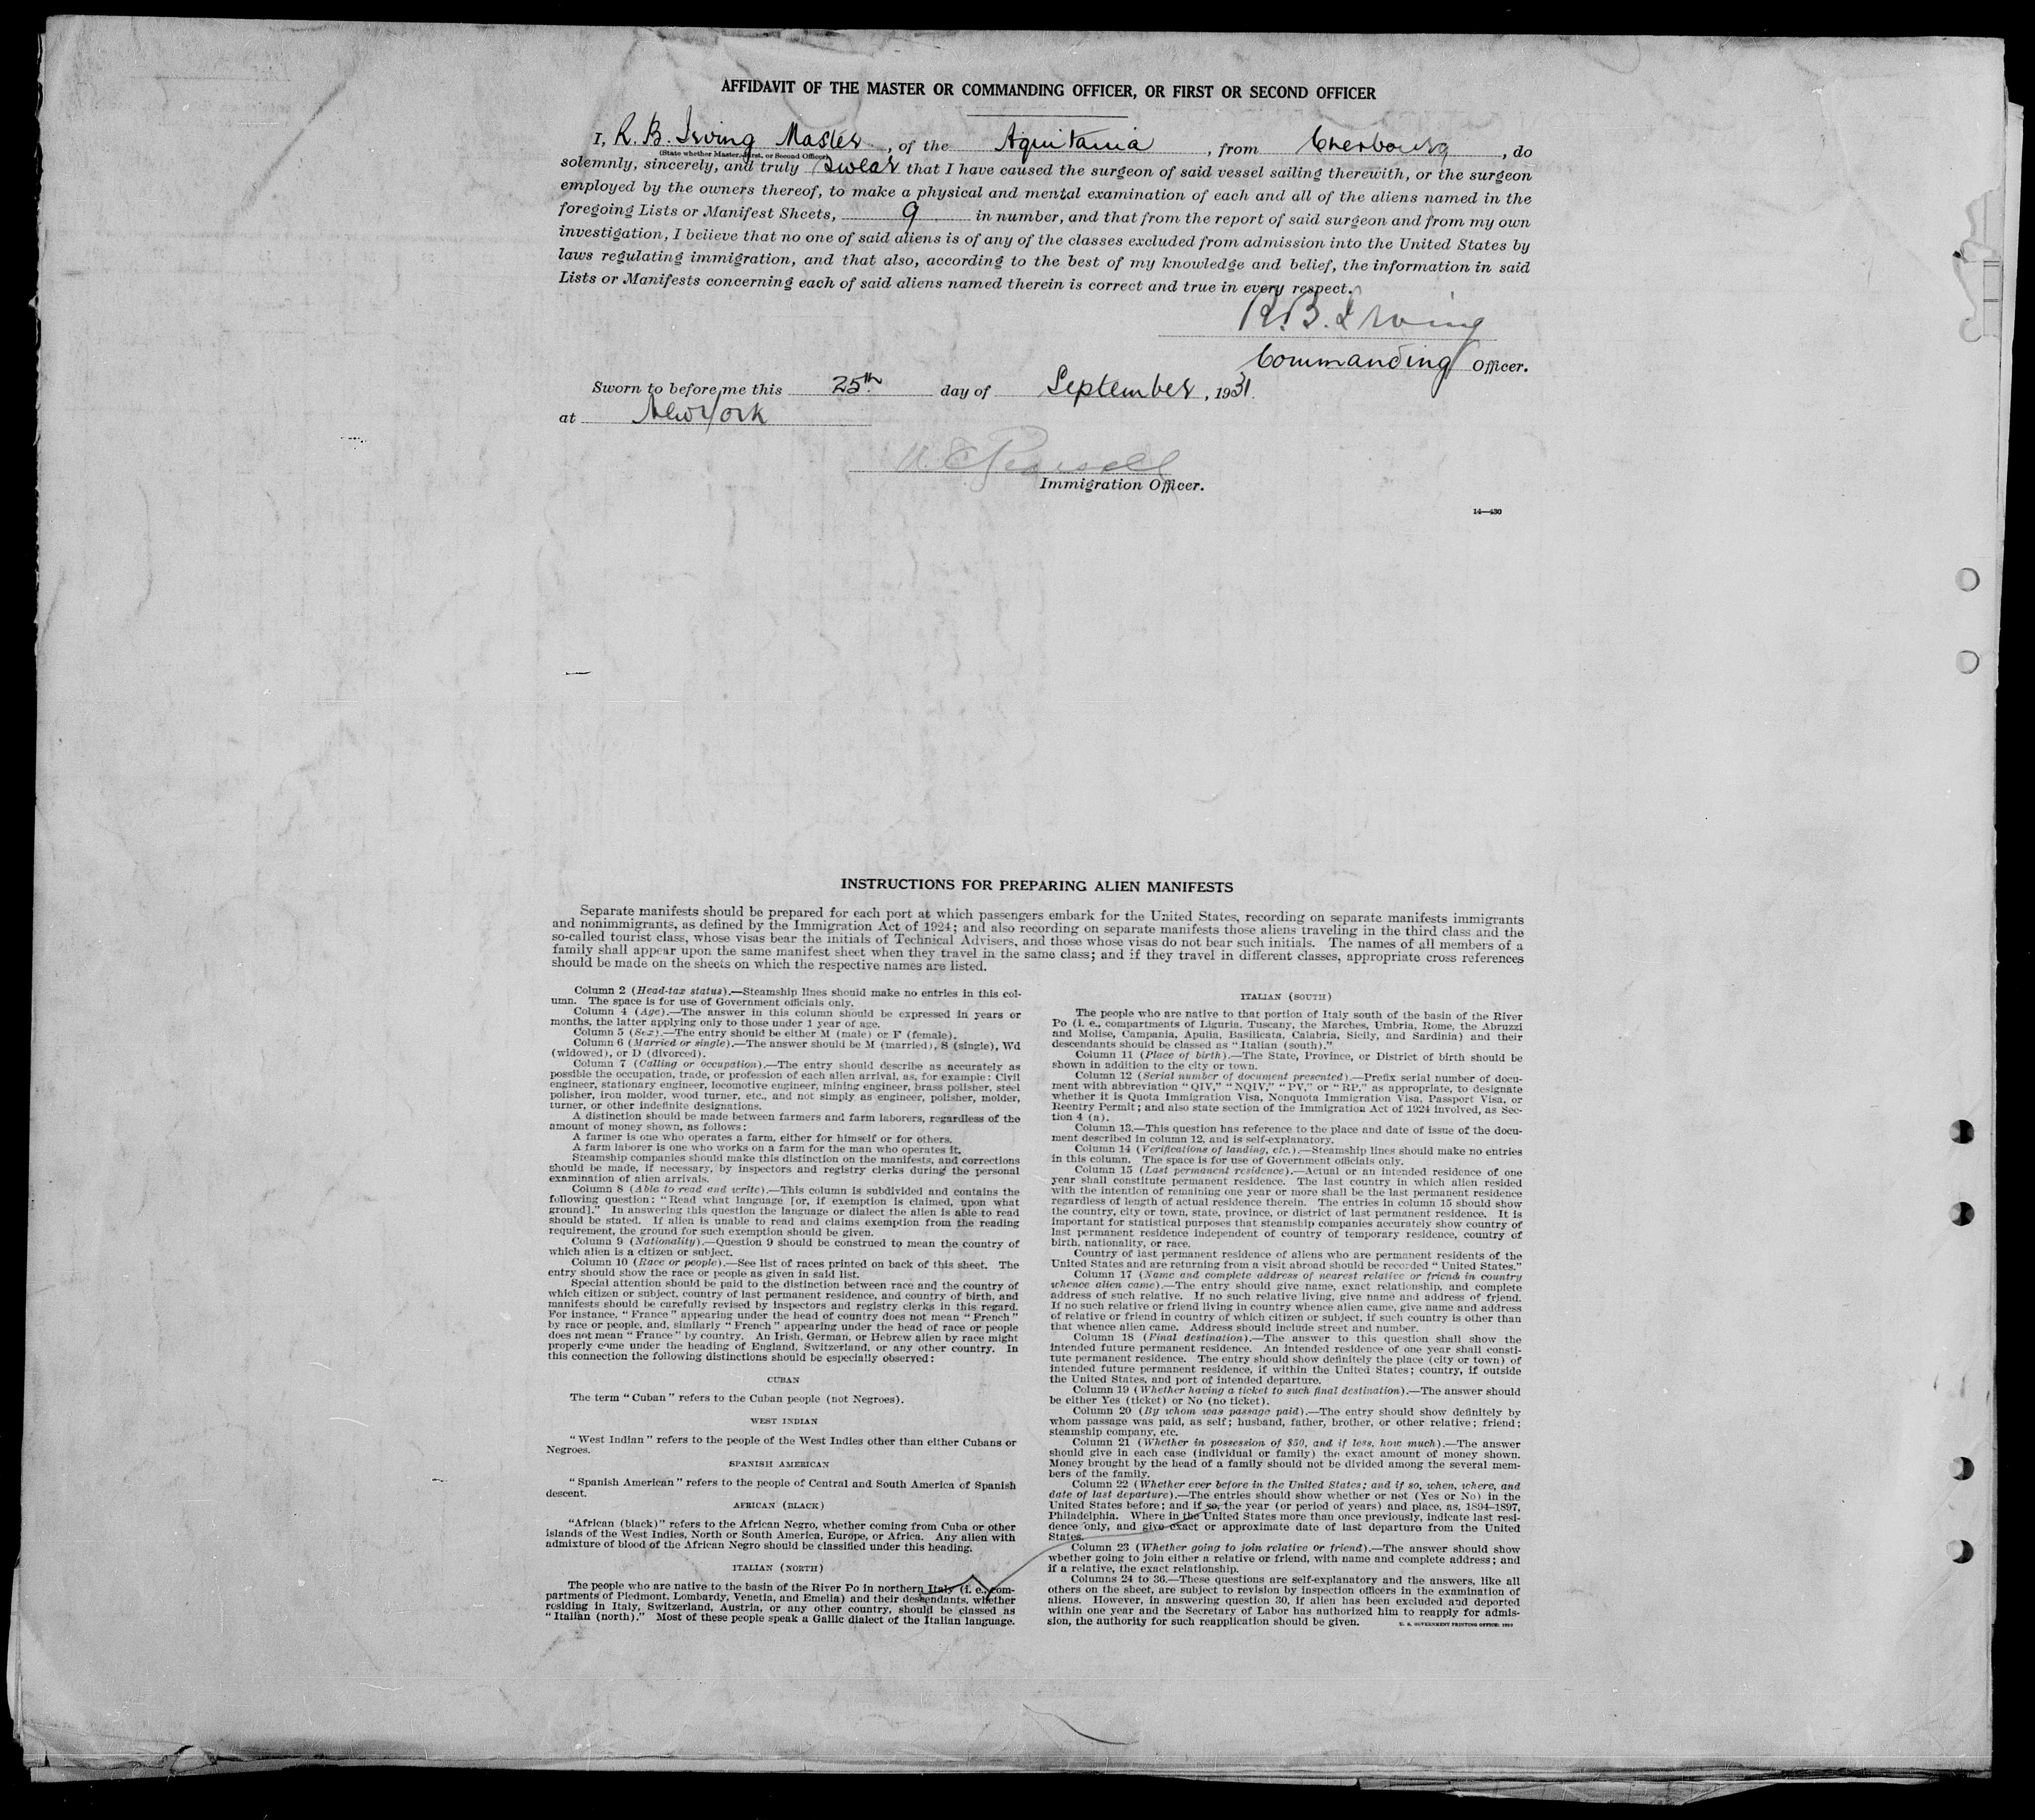 AFFIDAVIT OF THE MASTER OR COMMANDING OFFICER, OR FIRST OR SECOND OFFICER
I, R. B. Irving Master, of the Aquitania, from Cherbourg, do
(State whether Master, First, or Second Officer)
solemnly, sincerely, and truly swear that I have caused the surgeon of said vessel sailing therewith, or the surgeon
employed by the owners thereof, to make a physical and mental examination of each and all of the aliens named in the
foregoing Lists or Manifest Sheets, 9 in number, and that from the report of said surgeon and from my own
investigation, I believe that no one of said aliens is of any of the classes excluded from admission into the United States by
laws regulating immigration, and that also, according to the best of my knowledge and belief, the information in said
Lists or Manifests concerning each of said aliens named therein is correct and true in every respect.
R. B. Irving
Commanding Officer.
Sworn to before me this 25th day of September, 1931.
at New York
Immigration Officer.
14—430
INSTRUCTIONS FOR PREPARING ALIEN MANIFESTS
Separate manifests should be prepared for each port at which passengers embark for the United States, recording on separate manifests immigrants
and nonimmigrants, as defined by the Immigration Act of 1924; and also recording on separate manifests those aliens traveling in the third class and the
so-called tourist class, whose visas bear the initials of Technical Advisers, and those whose visas do not bear such initials. The names of all members of a
family shall appear upon the same manifest sheet when they travel in the same class; and if they travel in different classes, appropriate cross references
should be made on the sheets on which the respective names are listed.
Column 2 (Head-tax status).—Steamship lines should make no entries in this col-
umn. The space is for use of Government officials only.
Column 4 (Age).—The answer in this column should be expressed in years or
months, the latter applying only to those under 1 year of age.
Column 5 (Sex).—The entry should be either M (male) or F (female).
Column 6 (Married or single).—The answer should be M (married), S (single), Wd
(widowed), or D (divorced).
Column 7 (Calling or occupation).—The entry should describe as accurately as
possible the occupation, trade, or profession of each alien arrival, as, for example: Civil
engineer, stationary engineer, locomotive engineer, mining engineer, brass polisher, steel
polisher, iron molder, wood turner, etc., and not simply as engineer, polisher, molder,
turner, or other indefinite designations.
A distinction should be made between farmers and farm laborers, regardless of the
amount of money shown, as follows:
A farmer is one who operates a farm, either for himself or for others.
A farm laborer is one who works on a farm for the man who operates it.
Steamship companies should make this distinction on the manifests, and corrections
should be made, if necessary, by inspectors and registry clerks during the personal
examination of alien arrivals.
Column 8 (Able to read and write).—This column is subdivided and contains the
following question: "Read what language [or, if exemption is claimed, upon what
ground]." In answering this question the language or dialect the alien is able to read
should be stated. If alien is unable to read and claims exemption from the reading
requirement, the ground for such exemption should be given.
Column 9 (Nationality).—Question 9 should be construed to mean the country of
which alien is a citizen or subject.
Column 10 (Race or people).—See list of races printed on back of this sheet. The
entry should show the race or people as given in said list.
Special attention should be paid to the distinction between race and the country of
which citizen or subject, country of last permanent residence, and country of birth, and
manifests should be carefully revised by inspectors and registry clerks in this regard.
For instance, "France" appearing under the head of country does not mean "French"
by race or people, and, similarly "French" appearing under the head of race or people
does not mean "France" by country. An Irish, German, or Hebrew alien by race might
properly come under the heading of England, Switzerland, or any other country. In
this connection the following distinctions should be especially observed:
CUBAN
The term "Cuban" refers to the Cuban people (not Negroes).
WEST INDIAN
"West Indian" refers to the people of the West Indies other than either Cubans or
Negroes.
SPANISH AMERICAN
"Spanish American" refers to the people of Central and South America of Spanish
descent.
AFRICAN (BLACK)
"African (black)" refers to the African Negro, whether coming from Cuba or other
islands of the West Indies, North or South America, Europe, or Africa. Any alien with
admixture of blood of the African Negro should be classified under this heading.
ITALIAN (NORTH)
The people who are native to the basin of the River Po in northern Italy (i. e., com-
partments of Piedmont, Lombardy, Venetia, and Emelia) and their descendants, whether
residing in Italy, Switzerland, Austria, or any other country, should be classed as
"Italian (north)." Most of these people speak a Gallic dialect of the Italian language.
ITALIAN (SOUTH)
The people who are native to that portion of Italy south of the basin of the River
Po (i. e., compartments of Liguria, Tuscany, the Marches, Umbria, Rome, the Abruzzi
and Molise, Campania, Apulia, Basilicata, Calabria, Sicily, and Sardinia) and their
descendants should be classed as "Italian (south)."
Column 11 (Place of birth).—The State, Province, or District of birth should be
shown in addition to the city or town.
Column 12 (Serial number of document presented).—Prefix serial number of docu-
ment with abbreviation "QIV," "NQIV," "PV," or "RP," as appropriate, to designate
whether it is Quota Immigration Visa, Nonquota Immigration Visa, Passport Visa, or
Reentry Permit; and also state section of the Immigration Act of 1924 involved, as Sec-
tion 4 (a).
Column 13.—This question has reference to the place and date of issue of the docu-
ment described in column 12, and is self-explanatory.
Column 14 (Verifications of landing, etc.).—Steamship lines should make no entries
in this column. The space is for use of Government officials only.
Column 15 (Last permanent residence).—Actual or an intended residence of one
year shall constitute permanent residence. The last country in which alien resided
with the intention of remaining one year or more shall be the last permanent residence
regardless of length of actual residence therein. The entries in column 15 should show
the country, city or town, state, province, or district of last permanent residence. It is
important for statistical purposes that steamship companies accurately show country of
last permanent residence independent of country of temporary residence, country of
birth, nationality, or race.
Country of last permanent residence of aliens who are permanent residents of the
United States and are returning from a visit abroad should be recorded "United States."
Column 17 (Name and complete address of nearest relative or friend in country
whence alien came).—The entry should give name, exact relationship, and complete
address of such relative. If no such relative living, give name and address of friend.
If no such relative or friend living in country whence alien came, give name and address
of relative or friend in country of which citizen or subject, if such country is other than
that whence alien came. Address should include street and number.
Column 18 (Final destination).—The answer to this question shall show the
intended future permanent residence. An intended residence of one year shall consti-
tute permanent residence. The entry should show definitely the place (city or town) of
intended future permanent residence, if within the United States; country, if outside
the United States, and port of intended departure.
Column 19 (Whether having a ticket to such final destination).—The answer should
be either Yes (ticket) or No (no ticket).
Column 20 (By whom was passage paid).—The entry should show definitely by
whom passage was paid, as self; husband, father, brother, or other relative; friend;
steamship company, etc.
Column 21 (Whether in possession of $50, and if less, how much).—The answer
should give in each case (individual or family) the exact amount of money shown.
Money brought by the head of a family should not be divided among the several mem-
bers of the family.
Column 22 (Whether ever before in the United States; and if so, when, where, and
date of last departure).—The entries should show whether or not (Yes or No) in the
United States before; and if so, the year (or period of years) and place, as, 1894–1897,
Philadelphia. Where in the United States more than once previously, indicate last resi-
dence only, and give exact or approximate date of last departure from the United
States.
Column 23 (Whether going to join relative or friend).—The answer should show
whether going to join either a relative or friend, with name and complete address; and
if a relative, the exact relationship.
Columns 24 to 36.—These questions are self-explanatory and the answers, like all
others on the sheet, are subject to revision by inspection officers in the examination of
aliens. However, in answering question 30, if alien has been excluded and deported
within one year and the Secretary of Labor has authorized him to reapply for admis-
sion, the authority for such reapplication should be given.
U. S. GOVERNMENT PRINTING OFFICE: